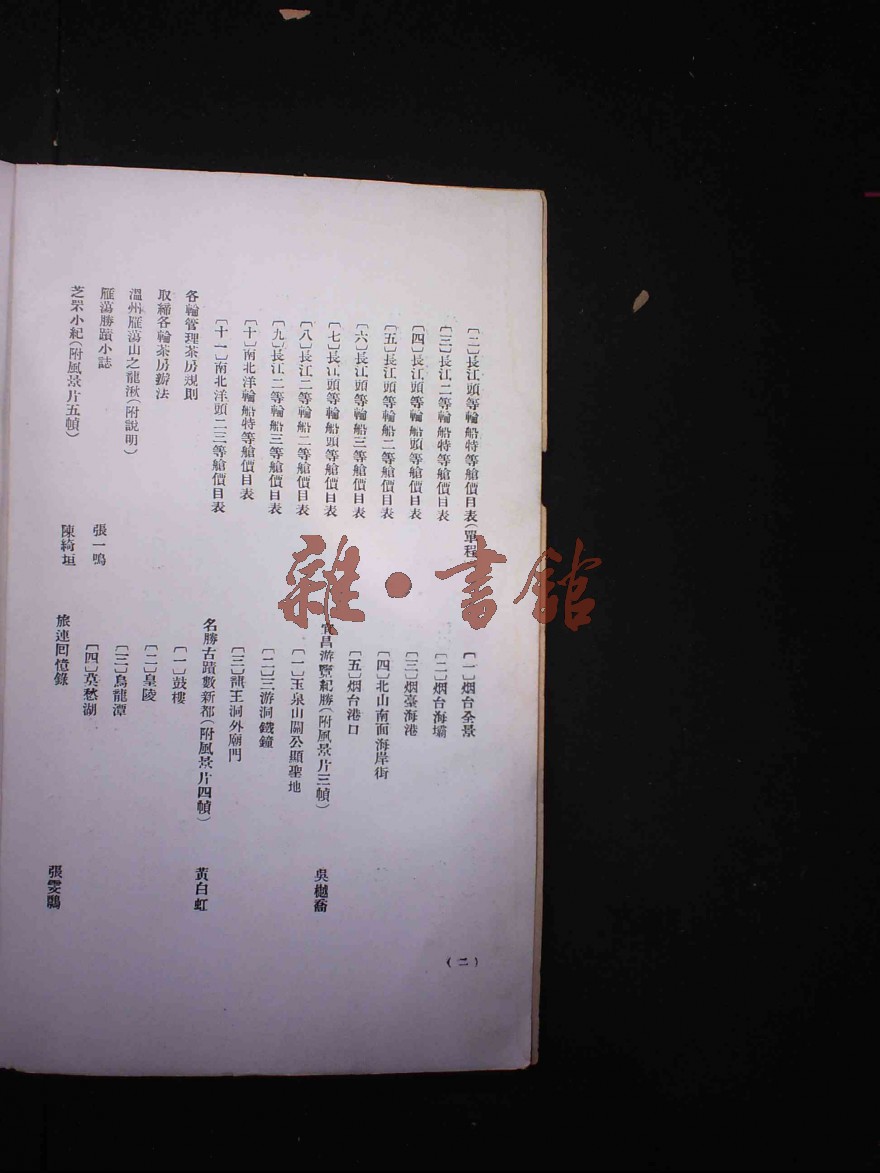 〔二〕長江頭等輪船特等艙價目表(單程
〔三〕長江二等輪船特等艙價目表
〔四〕長江頭等輪船頭等艙價目表
〔五〕長江頭等輪船二等艙價目表
〔六〕長江頭等輪船三等艙價目表
〔七〕長江頭等輪船頭等艙價目表
〔八〕長江二等輪船二等艙價目表
〔九〕長江二等輪船三等艙價目表
〔十〕南北洋輪船特等艙價目表
〔十一〕南北洋頭二三等艙價目表
各輪管理茶房規則
取締各輪茶房辦法
溫州雁蕩山之龍湫(附說明)
雁蕩勝蹟小誌 張一鳴
芝罘小紀(附風景片五幀) 陳綺垣
〔一〕烟台全景
〔二〕烟台海壩
〔三〕烟臺海港
〔四〕北山南面海岸街
〔五〕烟台港口
宜昌游覽紀勝(附風景片三幀) 吳樾喬
〔一〕玉泉山關公顯聖地
〔二〕三游洞鐵鐘
〔三〕龍王洞外廟門
名勝古蹟數新都(附風景片四幀) 黃白虹
〔一〕鼓樓
〔二〕皇陵
〔三〕烏龍潭
〔四〕莫愁湖
旅連回憶錄 張雯鵬
(二)
雜·書館